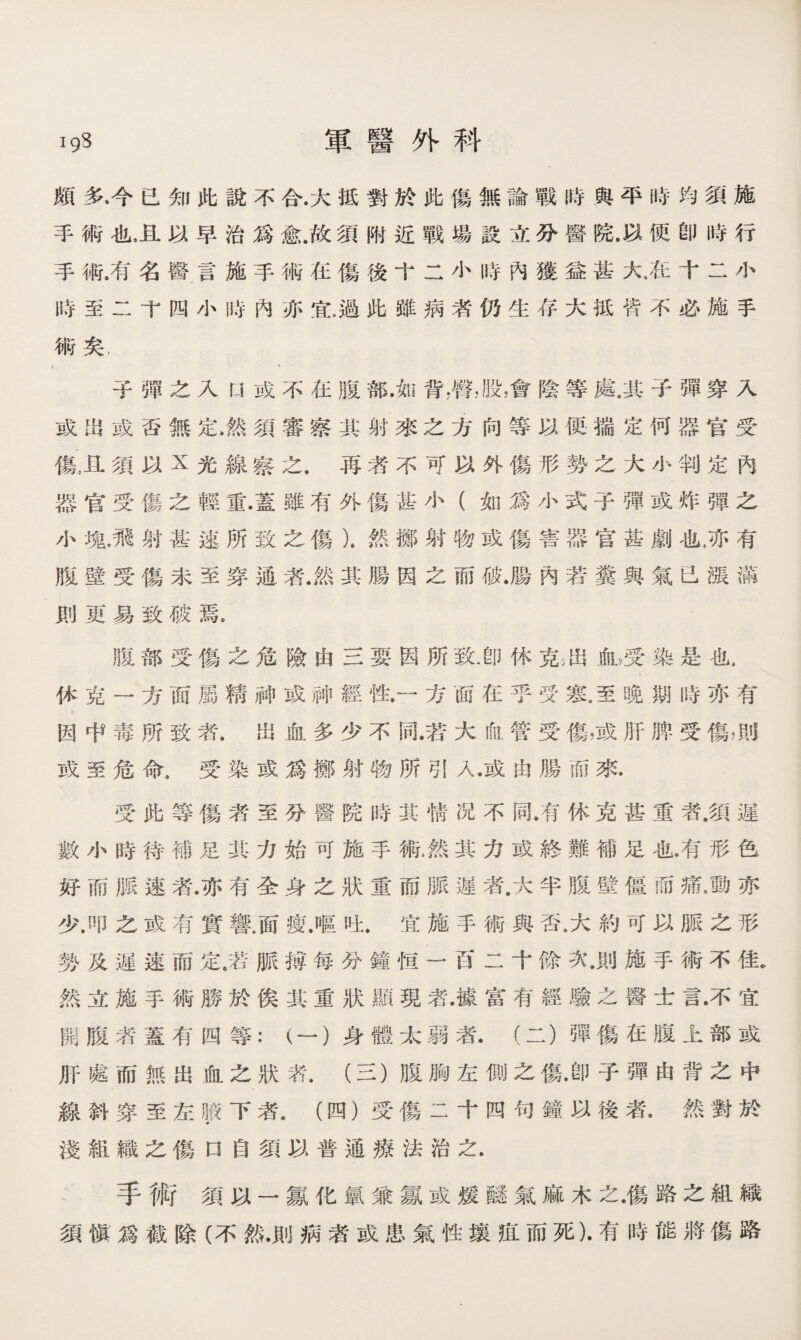 198 軍醫外科
頗多.今已知此說不合.大抵對於此傷無論戰時與平時均須施
手術也.且以早治爲愈.故須附近戰場設立分醫院.以便卽時行
手術.有名醫言施手術在傷後十二小時內獲益甚大.在十二小
時至二十四小時內亦宜.過此雖病者仍生存大抵皆不必施手
術矣.
子彈之入口或不在腹部.如背,臀,股,會陰等處.其子彈穿入
或出或否無定.然須審察其射來之方向等以便揣定何器官受
傷.且須以X光線察之. 再者不可以外傷形勢之大小判定內
器官受傷之輕重.蓋雖有外傷甚小(如爲小式子彈或炸彈之
小塊.飛射甚速所致之傷). 然擲射物或傷害器官甚劇也.亦有
腹壁受傷未至穿通者.然其腸因之而破.腸內若糞與氣已漲滿
則更易致破焉。
腹部受傷之危險由三要因所致.卽休克,出血,受染是也.
休克一方面屬精神或神經性.一方面在乎受寒.至晚期時亦有
因中毒所致者. 出血多少不同.若大血管受傷,或肝脾受傷,則
或至危命. 受染或爲擲射物所引入.或由腸而來.
受此等傷者至分醫院時其情况不同.有休克甚重者.須遲
數小時待補足其力始可施手術.然其力或終難補足也.有形色
好而脈速者.亦有全身之狀重而脈遲者.大半腹壁僵而痛.動亦
少.叩之或有實響.面瘦.嘔吐. 宜施手術與否.大約可以脈之形
勢及遲速而定.若脈搏每分鐘恒一百二十餘次.則施手術不佳.
然立施手術勝於俟其重狀顯現者.據富有經驗之醫士言.不宜
開腹者蓋有四等: (一)身體太弱者. (二)彈傷在腹上部或
肝處而無出血之狀者. (三)腹胸左側之傷.卽子彈由背之中
線斜穿至左腋下者. (四)受傷二十四句鐘以後者. 然對於
淺組織之傷口自須以普通療法治之.
手術 須以一氱化氫兼氱或煖醚氣麻木之.傷路之組織
須愼爲截除(不然.則病者或患氣性壞疽而死).有時能將傷路